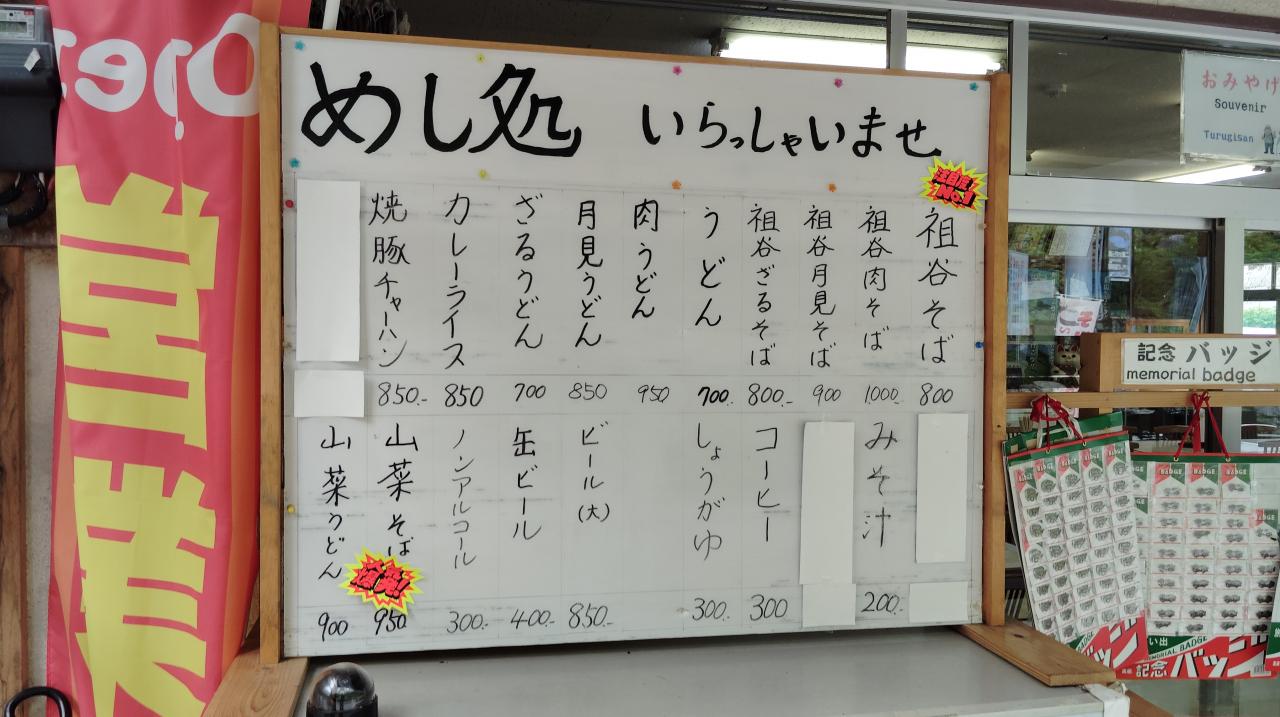 めし処 いらっしゃいませ
注目度No.1
祖谷そば 800
祖谷肉そば 1,000.-
祖谷月見そば 900
祖谷ざるそば 800.-
うどん 700.-
肉うどん 950
月見うどん 850
ざるうどん 700
カレーライス 850
焼豚チャーハン 850.-
みそ汁 200.-
コーヒー 300
しょうがゆ 300.-
ビール(大) 850.-
缶ビール 400.-
ノンアルコール 300.-
山菜そば 950
山菜うどん 900
Open
営業
おみやげ
Souvenir
Turugisan
記念 バッジ
memorial badge
BADGE
い出
MEMORIAL BADGE
記念バッジ